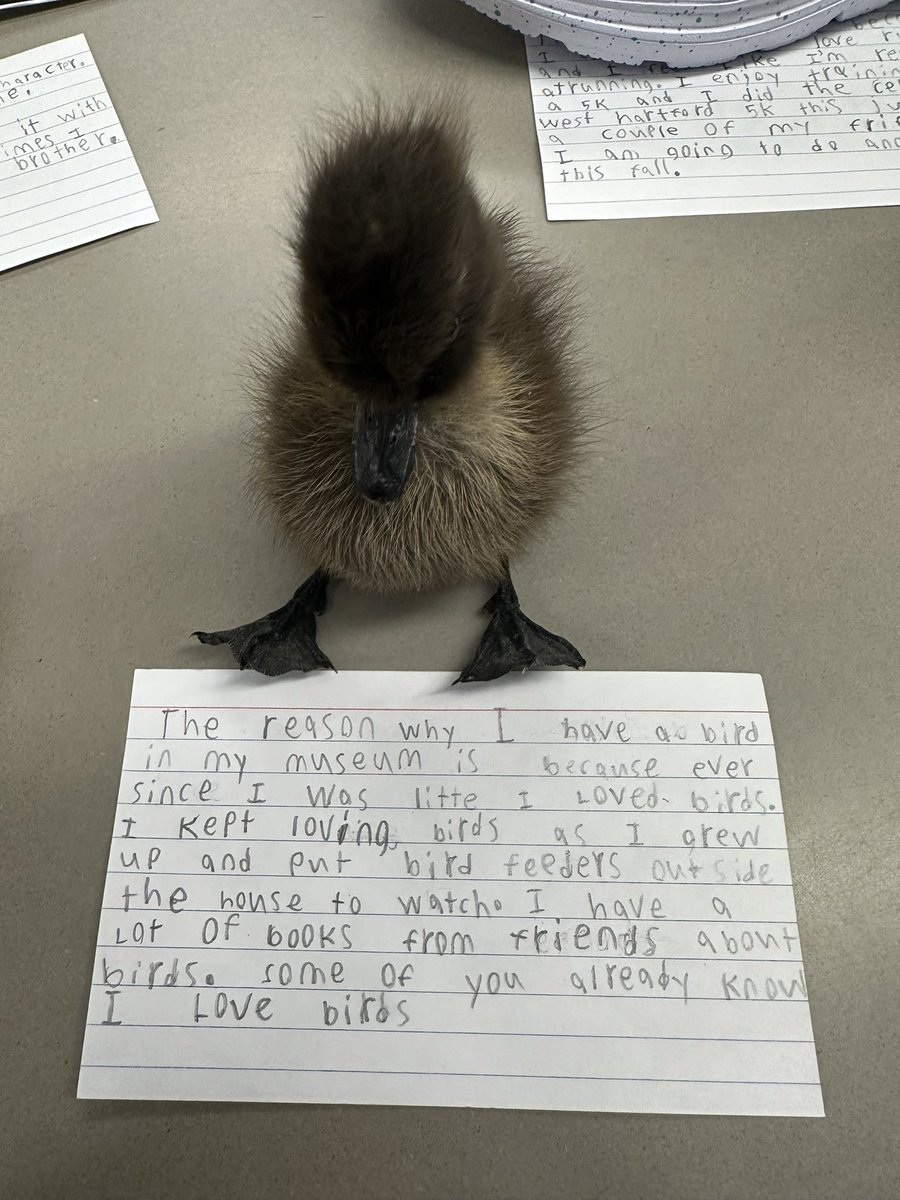 haracter.
ne.
it with
imes I
brother.
love r
and I
like I'm re
atrunning. I enjoy trainin
a 5K and I did the ce
west hartford 5K this Ju
a couple of my frie
I am going to do ano
this fall.
The reason why I have a bird
in my museum is because ever
since I was litte I Loved birds.
I kept loving birds as I grew
up and put bird feeders outside
the house to watch. I have a
Lot of books from friends about
birds. some of you already know
I Love birds